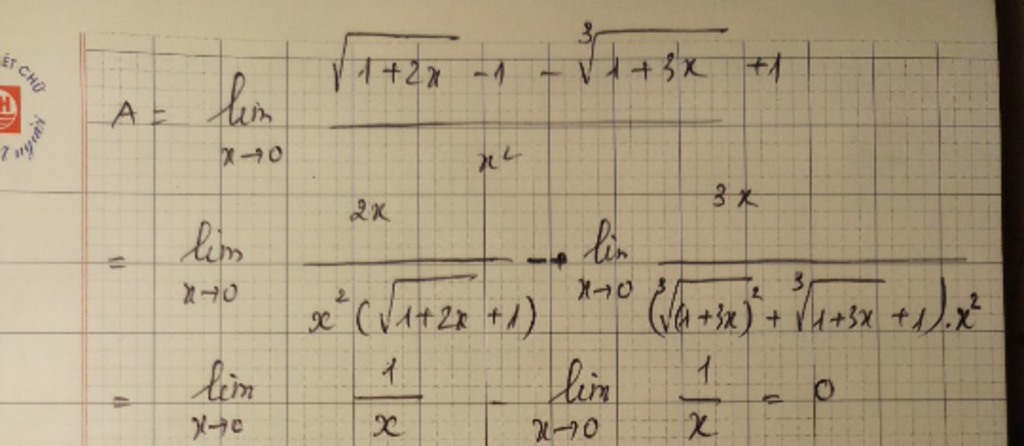 ẾT CHỮ
H
A = lim x→0 (√(1+2x) - 1 - ∛(1+3x) + 1) / x²
= lim x→0 2x / (x² (√(1+2x) + 1)) - lim x→0 3x / ((∛(1+3x)² + ∛(1+3x) + 1) . x²)
= lim x→0 1/x - lim x→0 1/x = 0